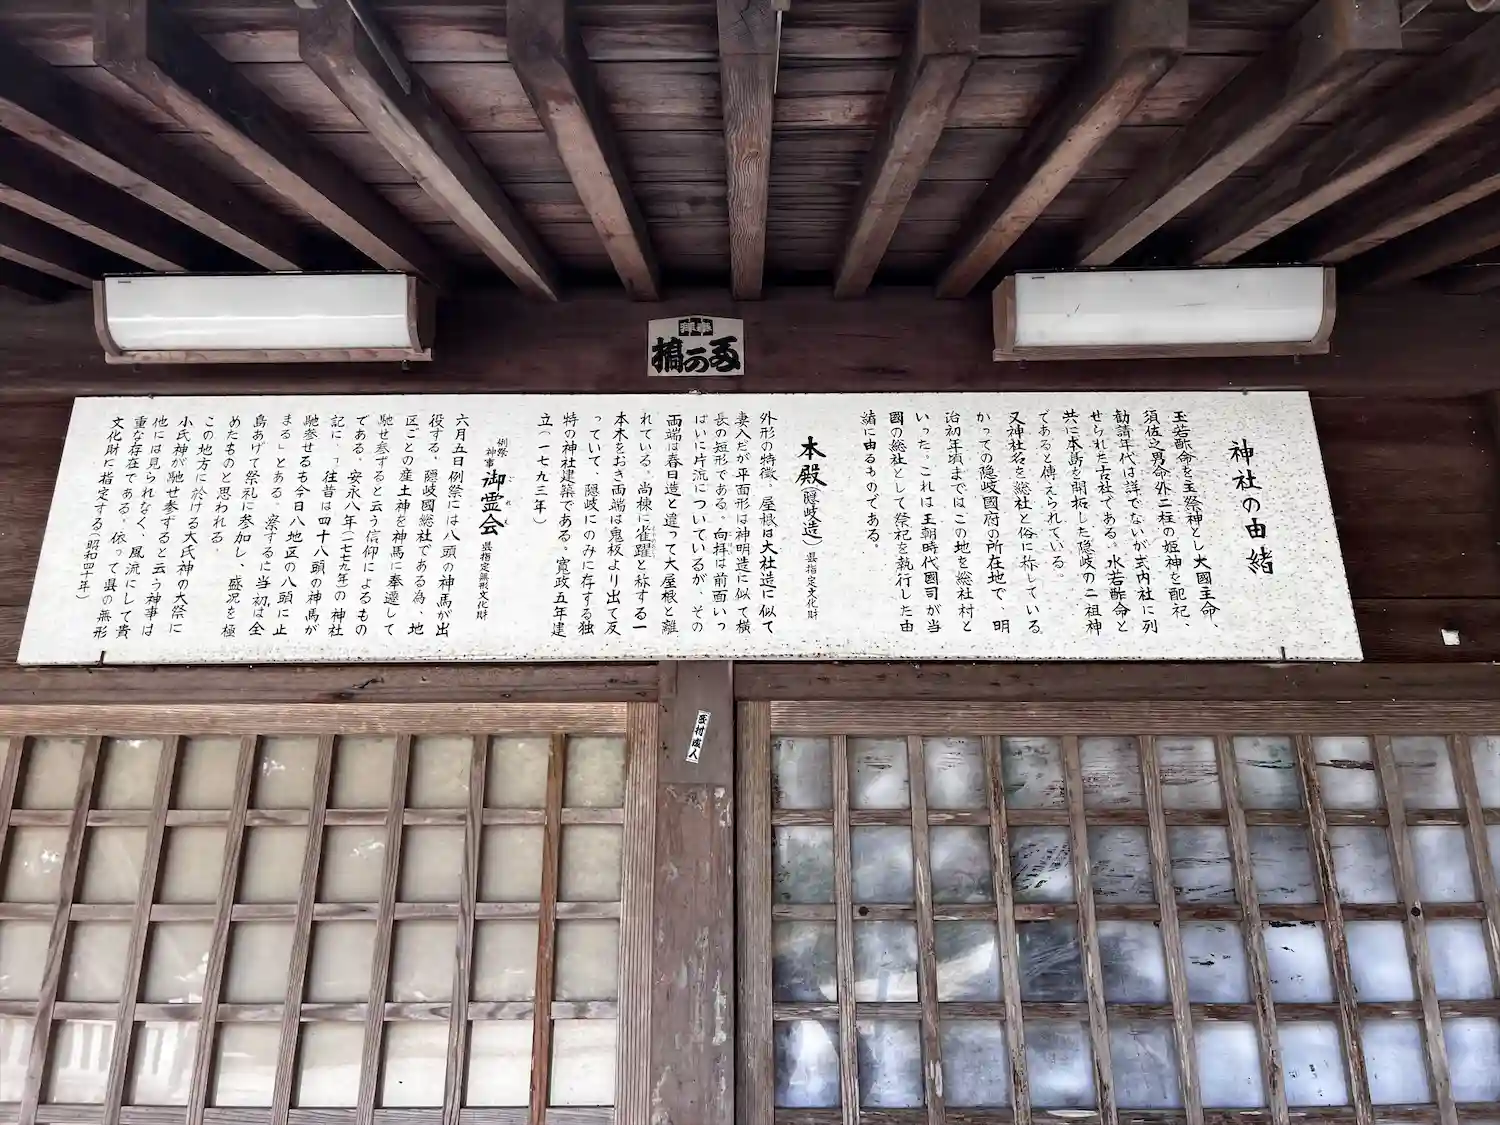 神社の由緒
玉若酢命を主祭神とし大國主命、
須佐之男命外二柱の姫神を配祀、
勧請年代は詳でないが式内社に列
せられた古社である。水若酢命と
共に本島を開拓した隠岐の二祖神
であると傳えられている。
又神社名を総社と俗に称している
かっての隠岐國府の所在地で、明
治初年頃まではこの地を総社村と
いった。これは王朝時代國司が当
國の総社として祭祀を執行した由
緒に由るものである。
本殿(隠岐造)県指定文化財
外形の特徴、屋根は大社造に似て
妻入だが平面形は神明造に似て横
長の矩形である。向拝は前面いっ
ぱいに片流についているが、その
両端は春日造と違って大屋根と離
れている。尚棟に雀躍と称する一
本木をおき両端は鬼板より出て反
っていて、隠岐にのみに存する独
特の神社建築である。寛政五年建
立(一七九三年)
例祭神事 御霊会 県指定無形文化財
ごれえ
六月五日例祭には八頭の神馬が出
役する、隠岐國総社である為、地
区ごとの産土神を神馬に奉遷して
馳せ参ずると云う信仰によるもの
である。安永八年(一七七九年)の神社
記に、「往昔は四十八頭の神馬が
馳参せるも今日八地区の八頭に止
まる」とある 察するに当初は全
島あげて祭礼に参加し、盛況を極
めたものと思われる。
この地方に於ける大氏神の大祭に
小氏神が馳せ参ずると云う神事は
他には見られなく、風流にして貴
重な存在である。依って県の無形
文化財に指定する(昭和四十年)